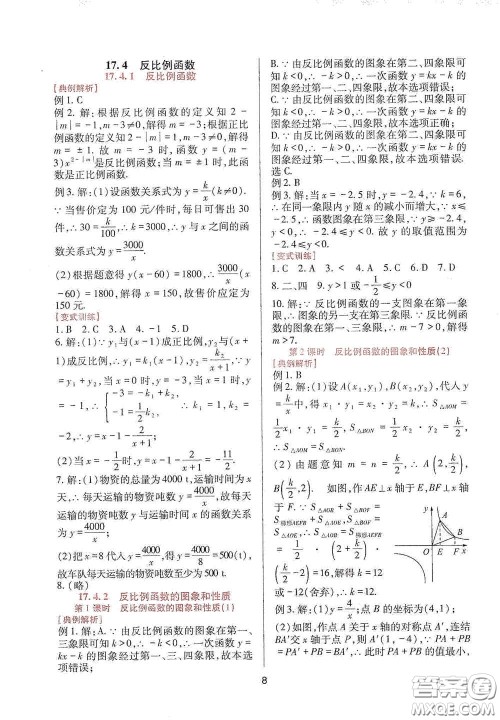 17.4 反比例函数
17.4.1 反比例函数
[典例解析]
例1. C
例2. 解:根据反比例函数的定义知2-
|m|=-1,m-3≠0,解得m=-3;根据正比
例函数的定义知2-|m|=1,m-3≠0,解得
m=±1. 故 m=-3 时, 函数 y=(m-
3)x^{2-|m|}是反比例函数;当 m=±1 时,此函
数是正比例函数.
例3. 解:(1)设函数关系式为y=k/x(k≠0).
∵当售价定为 100 元/件时,每日可售出 30
件,∴30=k/100,∴y与x之间的函
数关系式为y=3000/x.
(2)根据题意得y(x-60)=1800,∴3000/x(x
-60)=1800,解得x=150,故售价应定为
150元.
[变式训练]
1. B 2. C 3. C 4. -1 5. D
6. 解:(1)∵y₁与(x-1)成正比例,y₂与(x+
1)成反比例,∴y₁=k₁(x-1),y₂=k₂/(x+1),∵y=
y₁+y₂,当x=0时,y=-3,当x=1时,y=
-1,∴{-3=-k₁+k₂, -1=1/2 k₂,∴k₂=-2,k₁=
1,∴y=x-1-2/(x+1);
(2)当x=-1/2时,y=x-1-2/(x+1)=-11/2.
7. 解:(1)∵物资的总量为4000 t,运输时间为x
天,∴每天运输的物资吨数y=4000/x,故每天
运输的物资吨数y与运输时间x的函数关系式
为y=4000/x;
(2)把x=8代入y=4000/x,得y=4000/8=500,
故车队每天运输的物资吨数至少为500 t.
8. (略)
17.4.2 反比例函数的图象和性质
第1课时 反比例函数的图象和性质(1)
[典例解析]
例1. 解:A. ∵由反比例函数的图象在第一、
三象限可知k>0,∴-k<0,∴一次函数y=
kx-k的图象经过第一、三、四象限,故本选
项错误;
B. ∵由反比例函数的图象在第二、四象限可
知k<0,∴-k>0,∴一次函数y=kx-k的
图象经过第一、二、四象限,故本选项错误;
C. ∵由反比例函数的图象在第二、四象限可
知k<0,∴-k>0,∴一次函数y=kx-k的
图象经过第一、二、四象限,故本选项正确;
D. ∵由反比例函数的图象在第二、四象限可
知k<0,∴-k>0,∴一次函数y=kx-k的
图象经过第一、二、四象限,故本选项错误.
选C.
例2. B
例3. 解:当x=-2.5时,y=-2.4,∵k=6,
∴在同一象限内y随x的减小而增大,∵x≤
-2.5,∴函数图象在第三象限,∵y≥-2.4,
∴-2.4≤y<0. 故 y 的取值范围为
-2.4≤y<0.
[变式训练]
1. C 2. A 3. < 4. < 5. C 6. D 7. D
8. 二、四 9. y>1或-1/2≤y<0
10. 解:∵反比例函数的一支图象在第一象
限,∴图象的另一支在第三象限.∵图象在
第一、三象限,∴常数 m-7>0,解得
m>7.
第2课时 反比例函数的图象和性质(2)
[典例解析]
例1. B
例2. 解:(1)设A(x₁,y₁),B(x₂,y₂),代入y
=k/x中,得x₁·y₁=x₂·y₂=k,∴S△AOM=
1/2x₁·y₁=1/2k,S△BON=1/2x₂·y₂=1/2k,
∴S△AOM=S△BON;
(2)由题意知m=n=k/2,∴A(2,k/2),B
(k/2,2). 如图,作AE⊥x轴于E,BF⊥x轴
于F,∵S△AOB+S△BOF=
S梯形AEFB+S△AOE,∴S梯形AEFB
=1/2(2+k/2)·(k/2-2)=
16,解得k=±12,∵k>0,
∴k=12.
例3. 解:(1)y=4/x;点B的坐标为(4,1);
(2)如图,作点A关于x轴的对称点A′,连结
BA′交x轴于P,则A′(1,-4),∵PA+PB
=PA′+PB=BA′,此时PA+PB的值最小,
8
答案圈